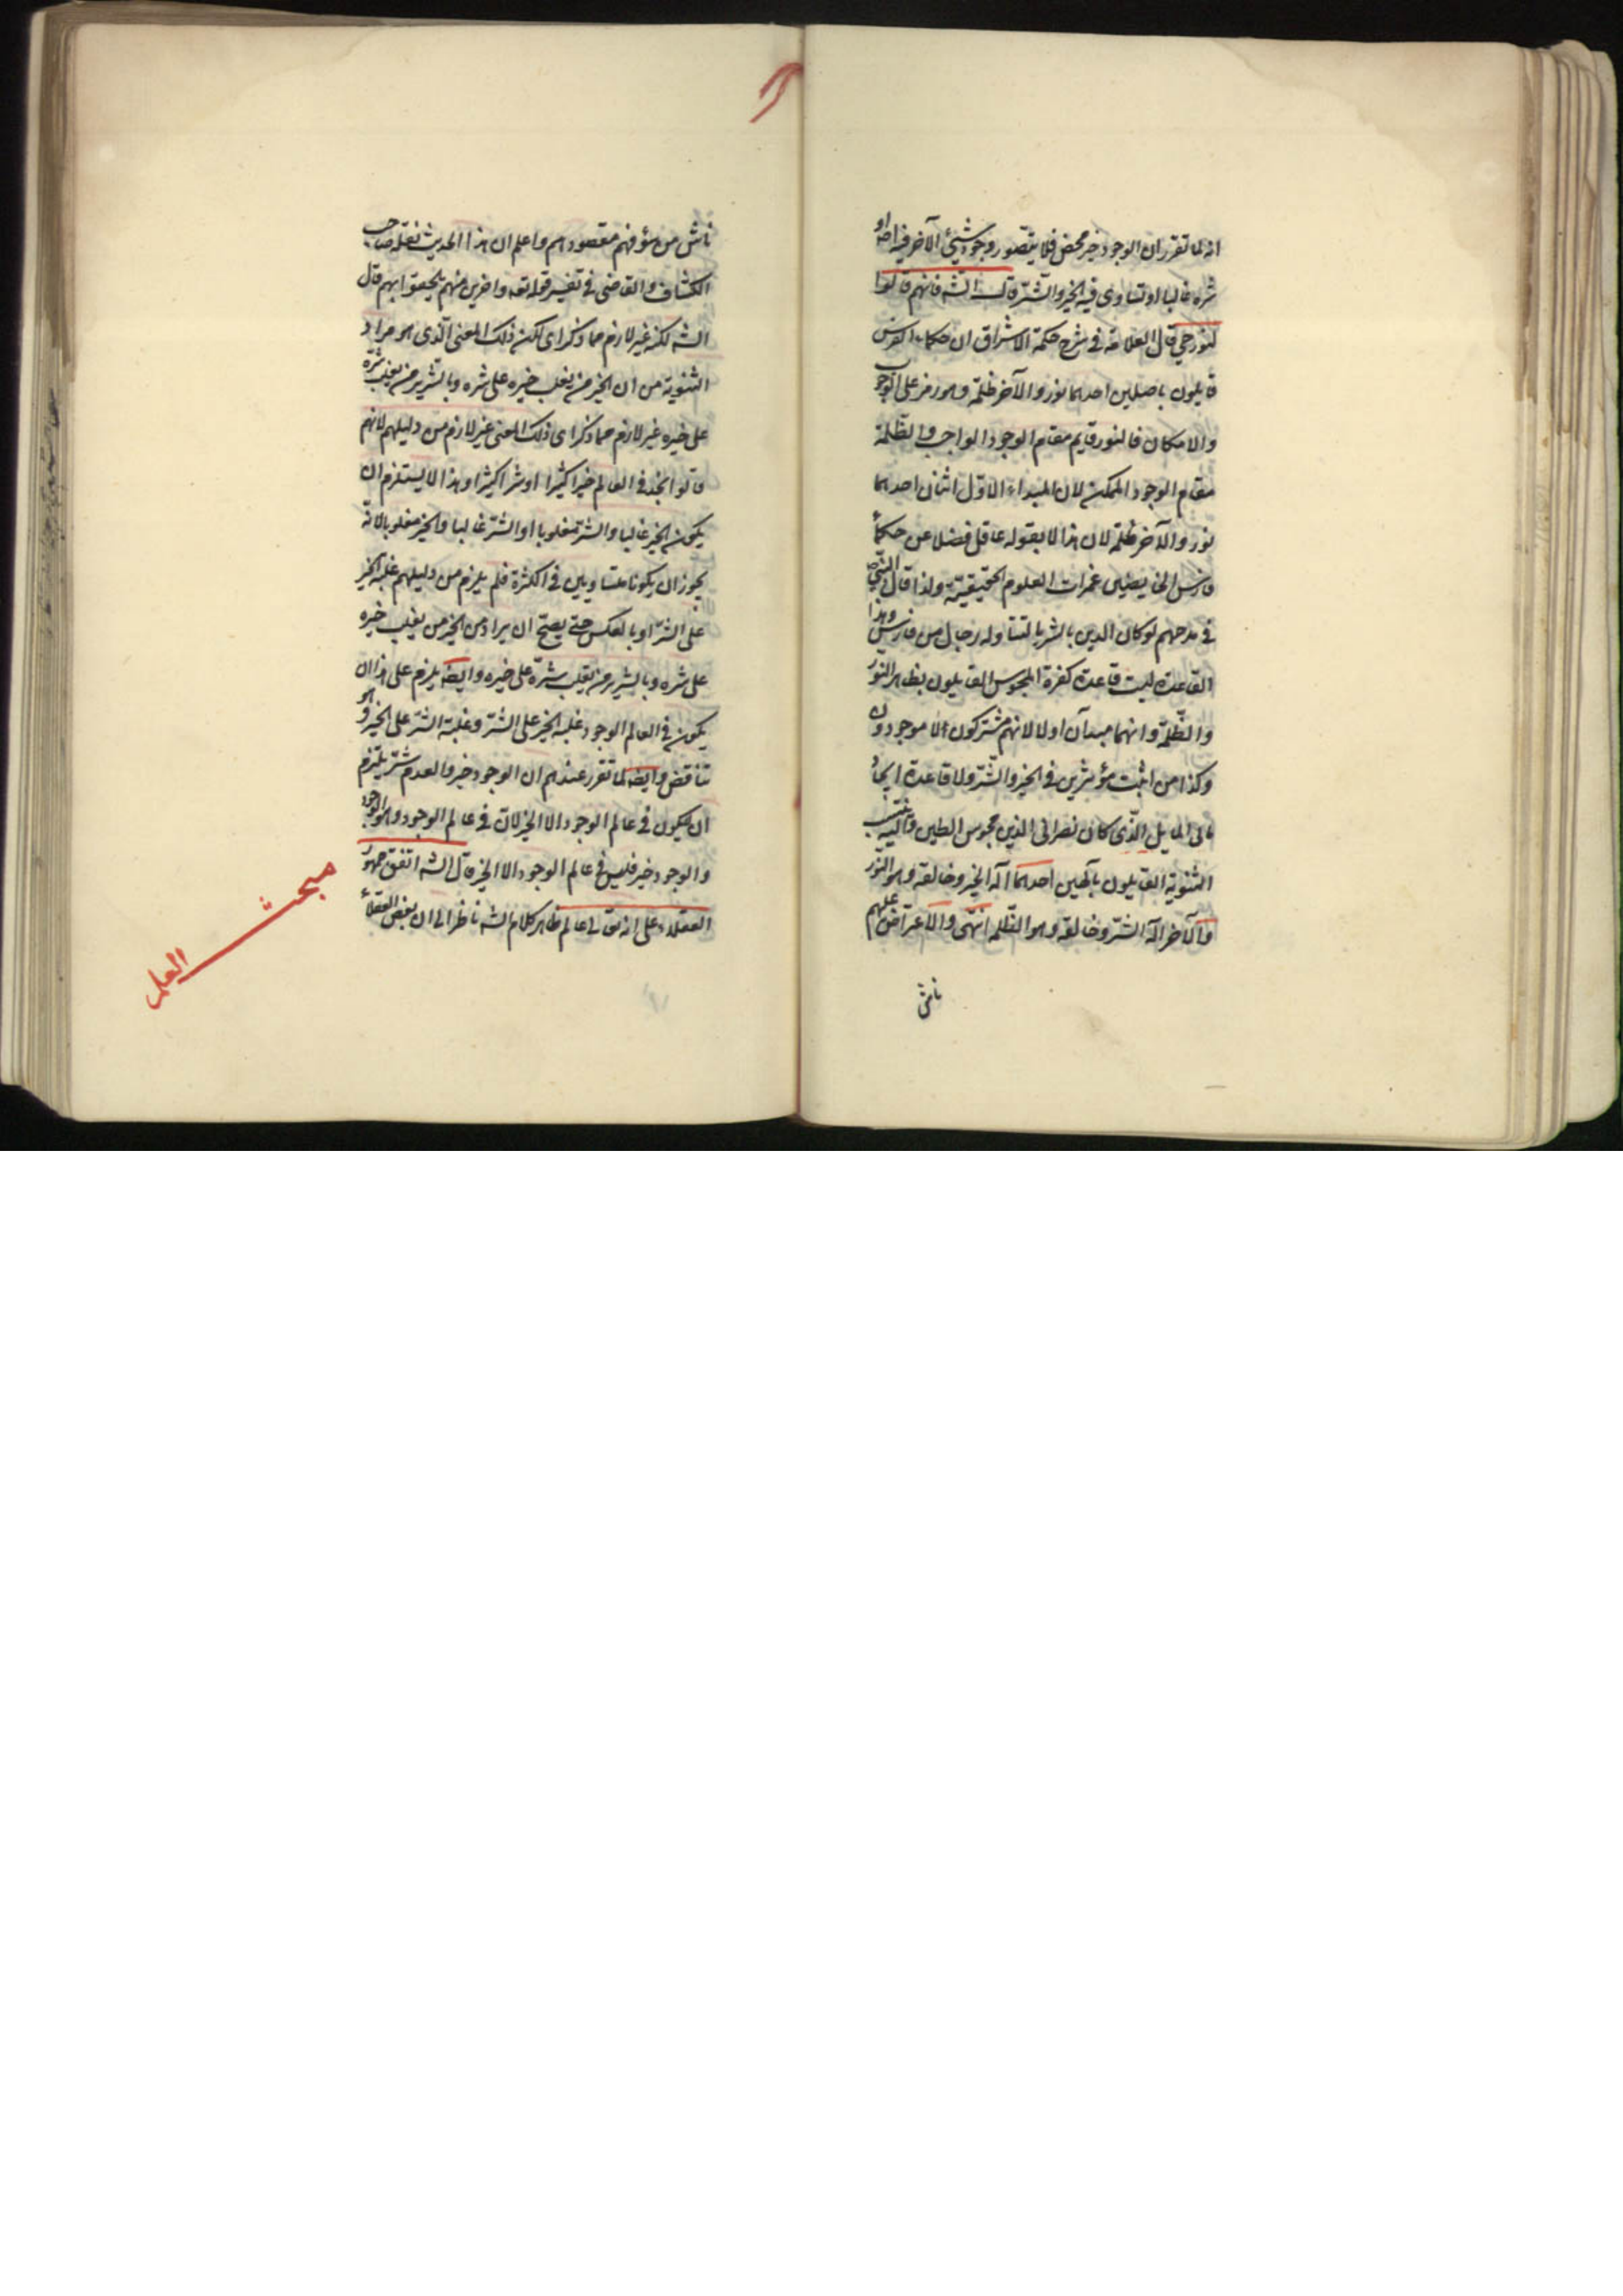 انه لما تقرر ان الوجود خير محض فلا يتصور وجود شيئ الآخر فيه اما او
شره غالبا او تساوى فيه الخير والشر قال الشه فانهم قالوا
النور حي قال العلامة فى شرح حكمة الاشراق ان حكماء الفرس
قايلون باصلين احدهما نور والآخر ظلمة وهو رمز على الوجوب
والامكان فالنور قايم مقام الوجود الواجب والظلمة
مقام الوجود الممكن لان المبداء الاول اثنان احدهما
نور والآخر ظلمة لان هذا لا يقوله عاقل فضلا عن حكماء
فارس الخايضين غمرات العلوم الحقيقية ولذا قال النبي ص
فى مدحهم لو كان الدين بالثريا لتناوله رجال من فارس وهذا
القاعدة ليست قاعدة كفرة المجوس القايلون بظاهر النور
والظلمة وانهما مبدآن اولا لانهم مشركون الا موحدون
وكذا من اثبت مؤثرين فى الخير والشر ولا قاعدة الحاد
مانى البابل الذى كان نصرانى الدين مجوس الطين واليه ينتسب
الثنوية القايلون بآلهين احدهما اله الخير وخالقه وهو النور
والآخر اله الشر وخالقه وهو الظلمه انتهى والاعتراض عليهم
ناش
ناش من سؤ فهم مقصودهم واعلم ان هذا الحديث نقله صاحب
الكشاف والقاضى فى تفسير قوله تعه واخرين منهم لما يلحقوا بهم قال
الشه لكنه غير لازم مما ذكر اى لكن ذلك المعنى الذى هو مراد
الثنوية من ان الخير من يغلب خيره على شره وبالشرير من يغلب شره
على خيره غير لازم مما ذكر اى ذلك المعنى غير لازم من دليلهم لانهم
قالو انجد فى العالم خيرا كثيرا او شرا كثيرا وهذا لا يستلزم ان
يكون الخير غالبا والشر مغلوبا او الشر غالبا والخير مغلوبا لانه
يجوز ان يكونا متساويين فى الكثرة فلم يلزم من دليلهم غلبة الخير
على الشر او بالعكس حتى يصح ان يراد من الخير من يغلب خيره
على شره وبالشرير من يغلب شره على خيره وايضه يلزم على هذا ان
يكون فى العالم الوجود غلبة الخير على الشر وغلبة الشر على الخير وهو
تناقض وايضه لما تقرر عندهم ان الوجود خير والعدم شر يلزم
ان لا يكون فى عالم الوجود الا الخير لان فى عالم الوجود هو الوجود
والوجود خير فليس فى عالم الوجود الا الخير قال الشه اتفق جمهور
العقلاء على انه تعالى عالم ظاهر كلام الشه ناظر الى ان بعض العقلاء
مبحث العلم